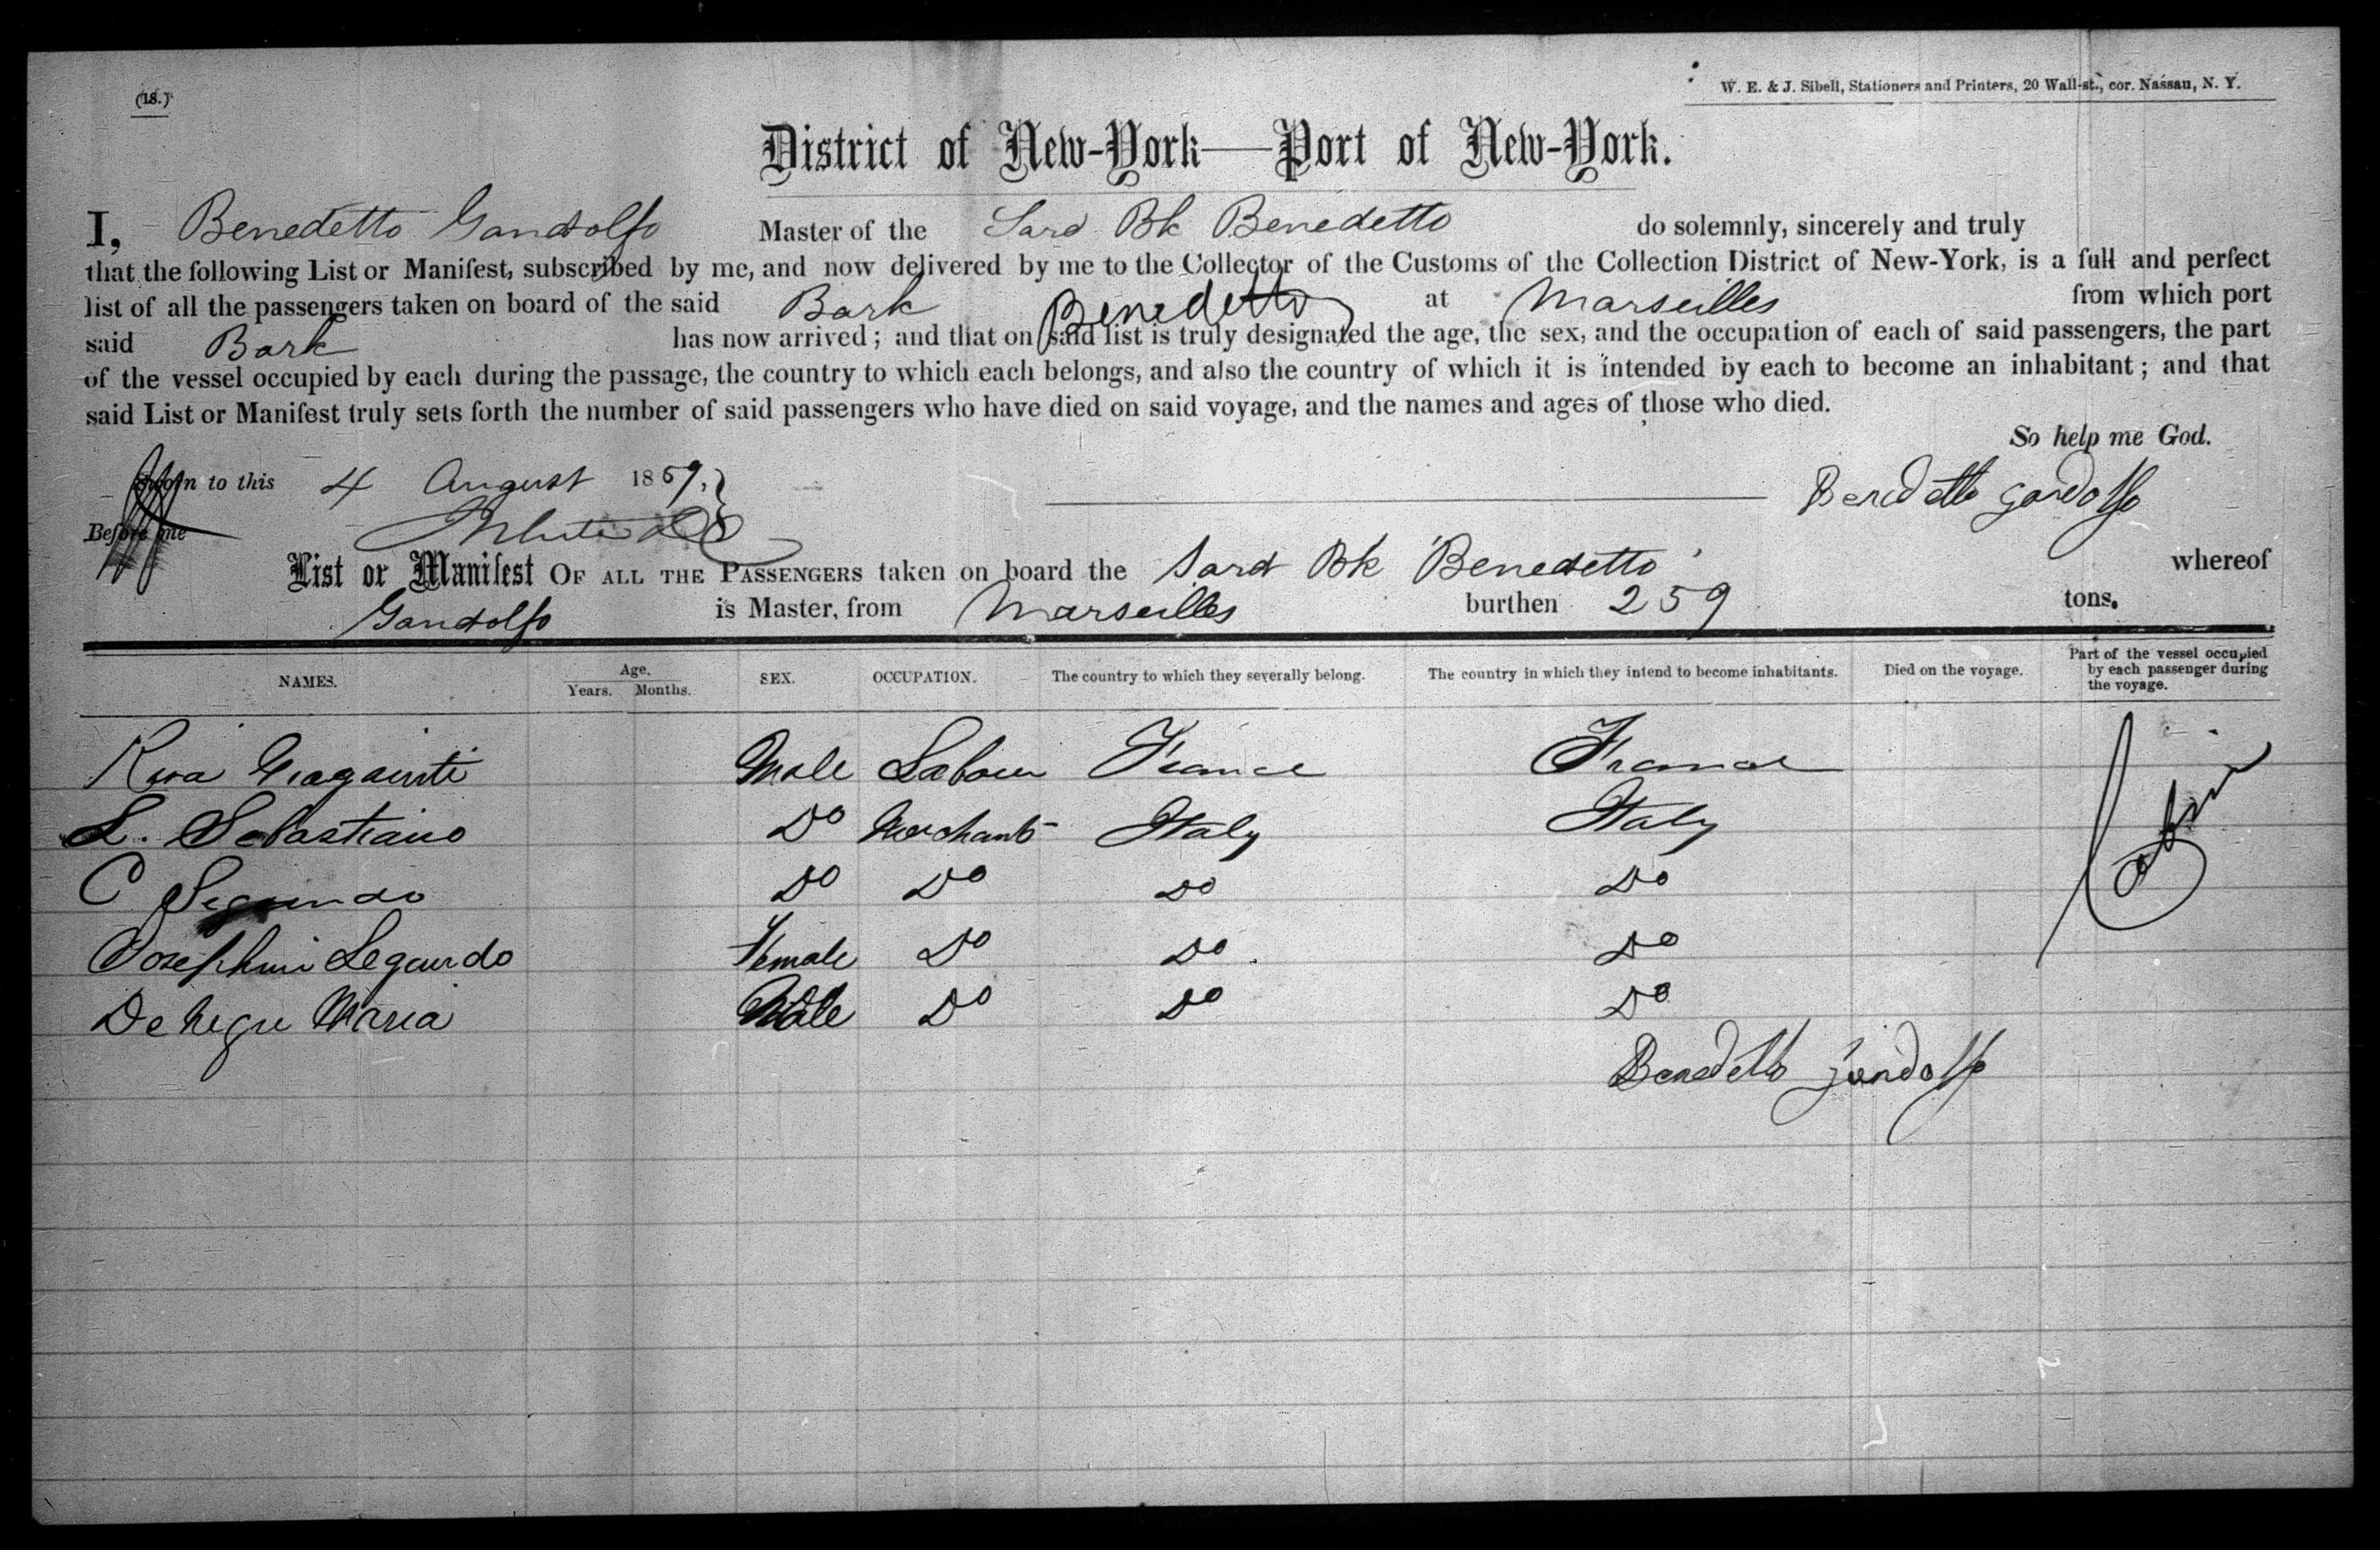 (18.)
W. E. & J. Sibell, Stationers and Printers, 20 Wall-st., cor. Nassau, N. Y.
District of New-York—Port of New-York.
I, Benedetto Gandolfo Master of the Sard Bk Benedetto do solemnly, sincerely and truly
that the following List or Manifest, subscribed by me, and now delivered by me to the Collector of the Customs of the Collection District of New-York, is a full and perfect
list of all the passengers taken on board of the said Bark Benedetto at Marseilles from which port
said Bark has now arrived; and that on said list is truly designated the age, the sex, and the occupation of each of said passengers, the part
of the vessel occupied by each during the passage, the country to which each belongs, and also the country of which it is intended by each to become an inhabitant; and that
said List or Manifest truly sets forth the number of said passengers who have died on said voyage, and the names and ages of those who died.
So help me God.
Sworn to this 4 August 1869.
Benedetto Gandolfo
Before me
List or Manifest OF ALL THE PASSENGERS taken on board the Sard Bk Benedetto whereof
Gandolfo is Master, from Marseilles burthen 259 tons.
NAMES. Age. Years. Months. SEX. OCCUPATION. The country to which they severally belong. The country in which they intend to become inhabitants. Died on the voyage. Part of the vessel occupied by each passenger during the voyage.
Male Labour France France Cabin
L. Sebastiano Do Merchant Italy Italy
C Segundo Do Do Do Do
Josephini Segundo Female Do Do Do
De Negre Maria Male Do Do Do
Benedetto Gandolfo